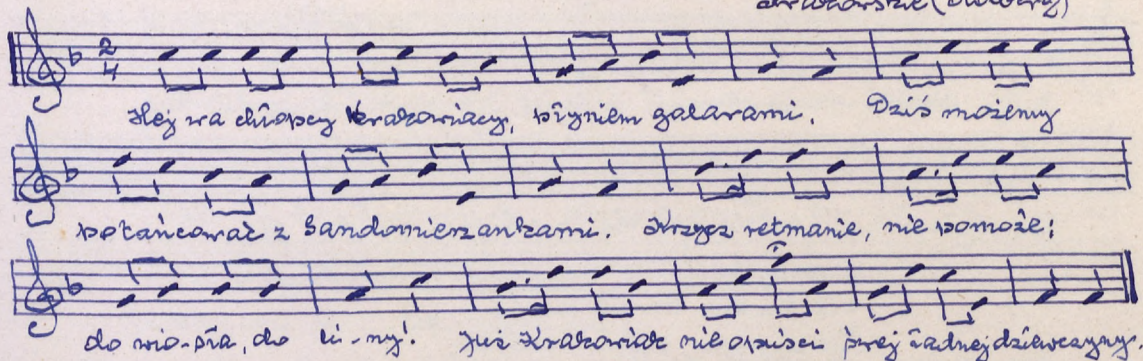 Krakowskie (Olwory)
2 4
Hej wa chłopcy Krakowiacy, płyniem galarami. Dziś możemy
potańcować z Sandomierzankami. Krzycz retmanie, nie pomoże;
do wio-sła, do li-ny! Już Krakowiak nie opuści swej ładnej dziewczyny.